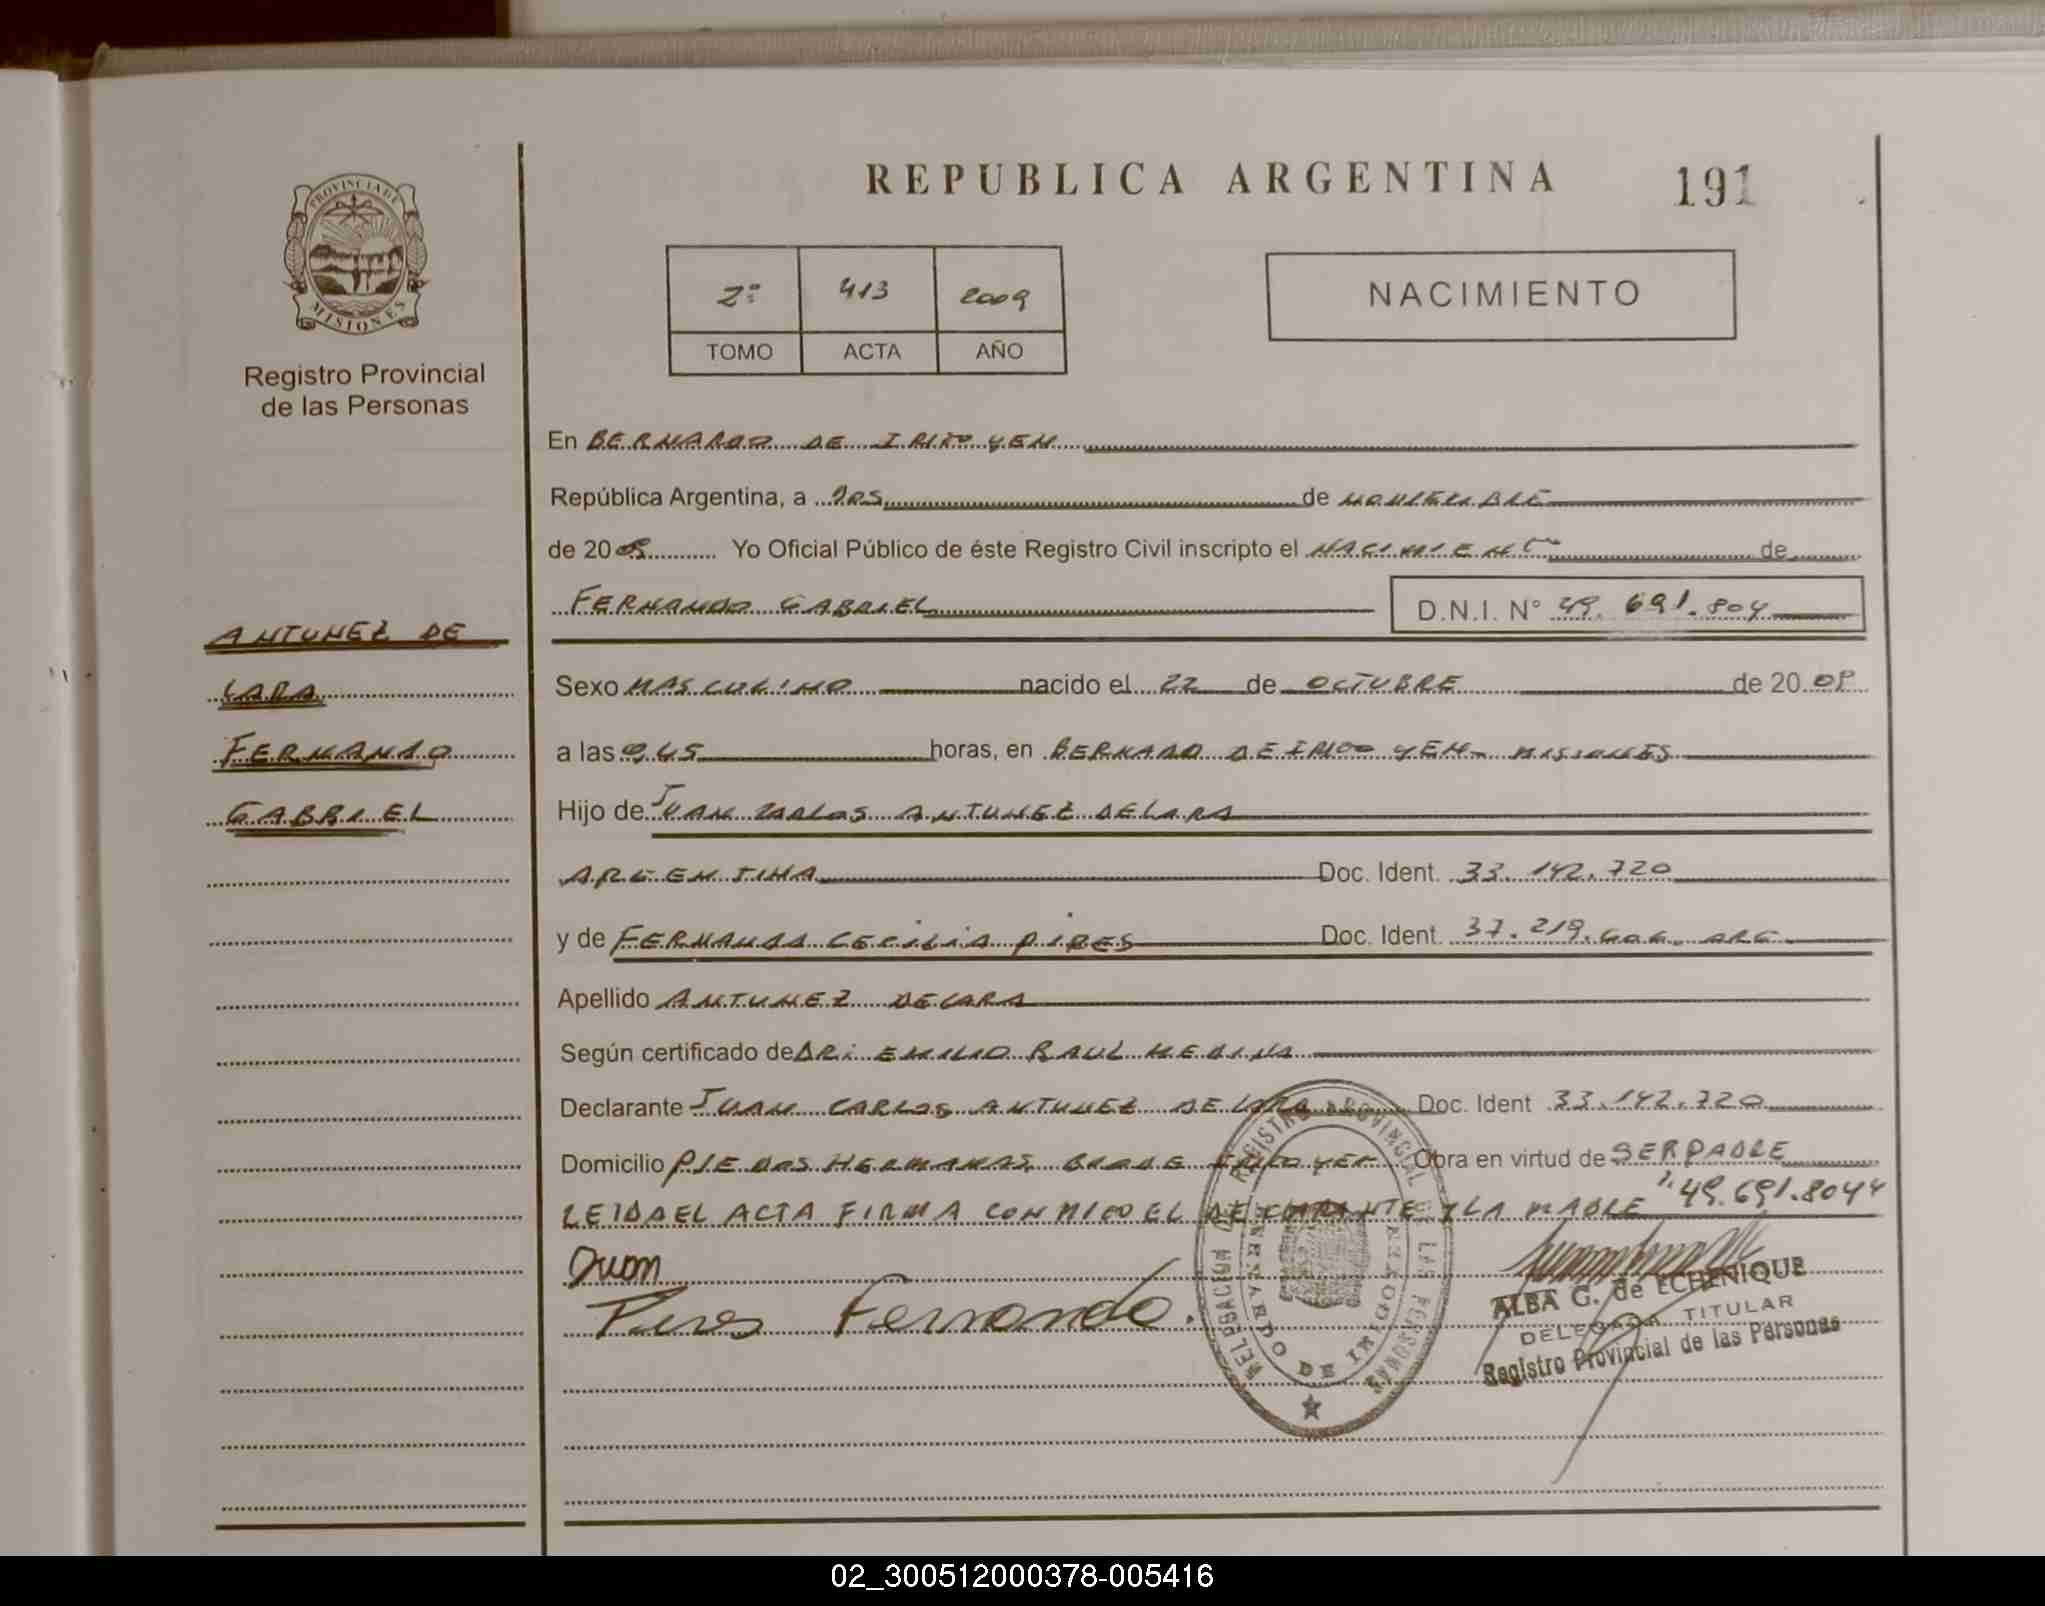 REPUBLICA ARGENTINA
191
PROVINCIA DE
MISIONES
Registro Provincial
de las Personas
2º 413 2009
TOMO ACTA AÑO
NACIMIENTO
En BERNARDO DE IRIGOYEN
República Argentina, a DOS de NOVIEMBRE
de 2009 Yo Oficial Público de éste Registro Civil inscripto el NACIMIENTO de
FERNANDO GABRIEL D.N.I. Nº 49.691.804
ANTUNEZ DE
LARA
FERNANDO
GABRIEL
Sexo MASCULINO nacido el 22 de OCTUBRE de 2009
a las 9,45 horas, en BERNADO DE IRIGOYEN- MISIONES
Hijo de JUAN CARLOS ANTUNEZ DE LARA
ARGENTINA Doc. Ident. 33.142.720
y de FERNANDA CECILIA PIRES Doc. Ident. 37.219.606. ARG.
Apellido ANTUNEZ DE LARA
Según certificado de DR: EMILIO RAUL MEDINA
Declarante JUAN CARLOS ANTUNEZ DE LARA Doc. Ident 33.142.720
Domicilio PJE DOS HERMANAS. BRDO DE IRIGOYEN Obra en virtud de SER PADRE
LEIDA EL ACTA FIRMA CONMIGO EL DECLARANTE Y LA MADRE 49.691.804
Juan
Pires Fernanda.
DELEGACION DE REGISTRO PROVINCIAL DE LAS PERSONAS
BERNARDO DE IRIGOYEN
ALBA G. de ECHENIQUE
DELEGADA TITULAR
Registro Provincial de las Personas
02_300512000378-005416